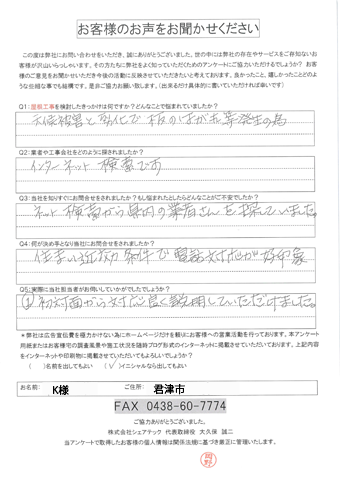 お客様のお声をお聞かせください
この度は弊社にお問い合わせをいただき、誠にありがとうございました。世の中には弊社の存在やサービスをご存知ないお
客様が沢山いらっしゃいます。その方たちに弊社をよく知っていただくためのアンケートにご協力いただけるでしょうか？お
客様のご意見をお聞かせいただき今後の活動に反映させていただきたいと考えております。良かったこと、嬉しかったことどのよ
うな些細な事でも結構です。是非ご協力お願い致します。（出来るだけ具体的に書いていただければ幸いです）
Q1：屋根工事を検討したきっかけは何ですか？どんなことで悩まれていましたか？
天候被害と劣化で板のはがれ等発生の為
Q2：業者や工事会社をどのように探されましたか？
インターネット検索です
Q3：当社を知りすぐにお問合せをされましたか？もし悩まれたとしたらどんなことがご不安でしたか？
ネット検索から県内の業者さんを探していました。
Q4：何が決め手となり当社にお問合せをされましたか？
住まい近郊の条件で電話対応が好印象
Q5：実際に当社担当者がお伺いしていかがでしたでしょうか？
初対面から対応良く説明していただけました。
＊弊社は広告宣伝費を極力かけない為にホームページだけを頼りにお客様への営業活動を行っております。本アンケート
用紙またはお客様宅の調査風景や施工状況を随時ブログ形式のインターネットに掲載させていただいております。上記内容
をインターネットや印刷物に掲載させていただいてもよろしいでしょうか？
（　）名前を出してもよい　（✓）イニシャルなら出してもよい
お名前： K様 ご住所： 君津市
FAX 0438-60-7774
お忙しい中、ご協力いただきありがとうございました。
株式会社シェアテック 代表取締役 大久保 誠二
当アンケートで取得したお客様の個人情報は関係法規に基づき厳正に管理いたします。